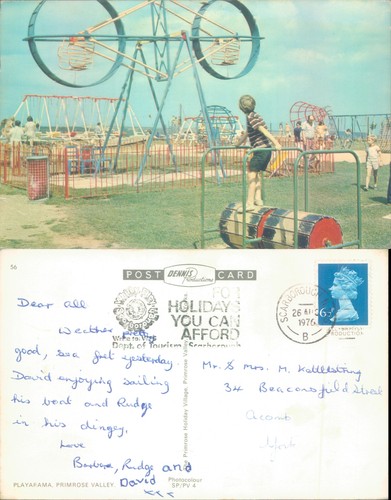 56
POST Dennis Productions CARD
FOR
HOLIDAYS
YOU CAN
AFFORD
Dept. of Tourism Scarborough
SCARBOROUGH
26 AUG
1976
B
Dear All
Weather
good, sea fret yesterday.
David enjoying sailing
his boat and Rudge
in his dingey.
Love
Barbara, Rudge and
David
xxx
Mr. & Mrs. M.
34 Beaconsfield Street
Acomb
York
Primrose Holiday Village, Primrose Valley
PLAYARAMA, PRIMROSE VALLEY,
Photocolour
SP/PV 4